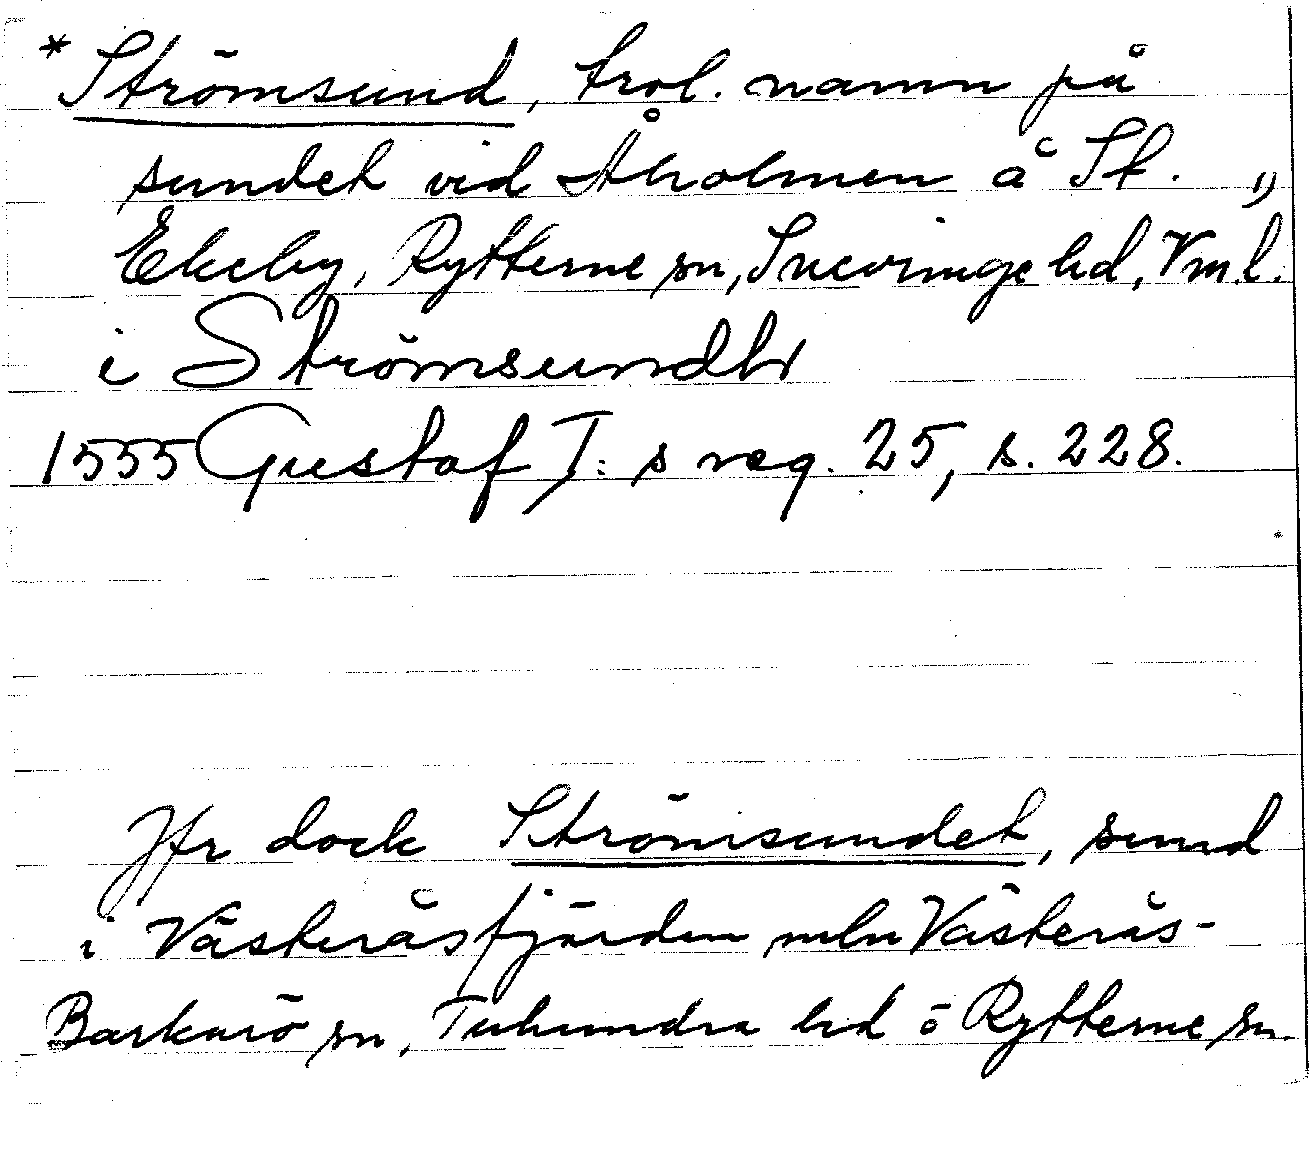 *Strömsund, trol. namn på
sundet vid Åholmen å St. "
Ekeby, Rytterne sn, Snevringe hd, Vml.
i Strömsundh
1555 Gustaf I:s reg. 25, s. 228.
Jfr dock Strömsundet, sund
i Västeråsfjärden mln Västerås-
Barkarö sn, Tuhundra hd o Rytterne sn.